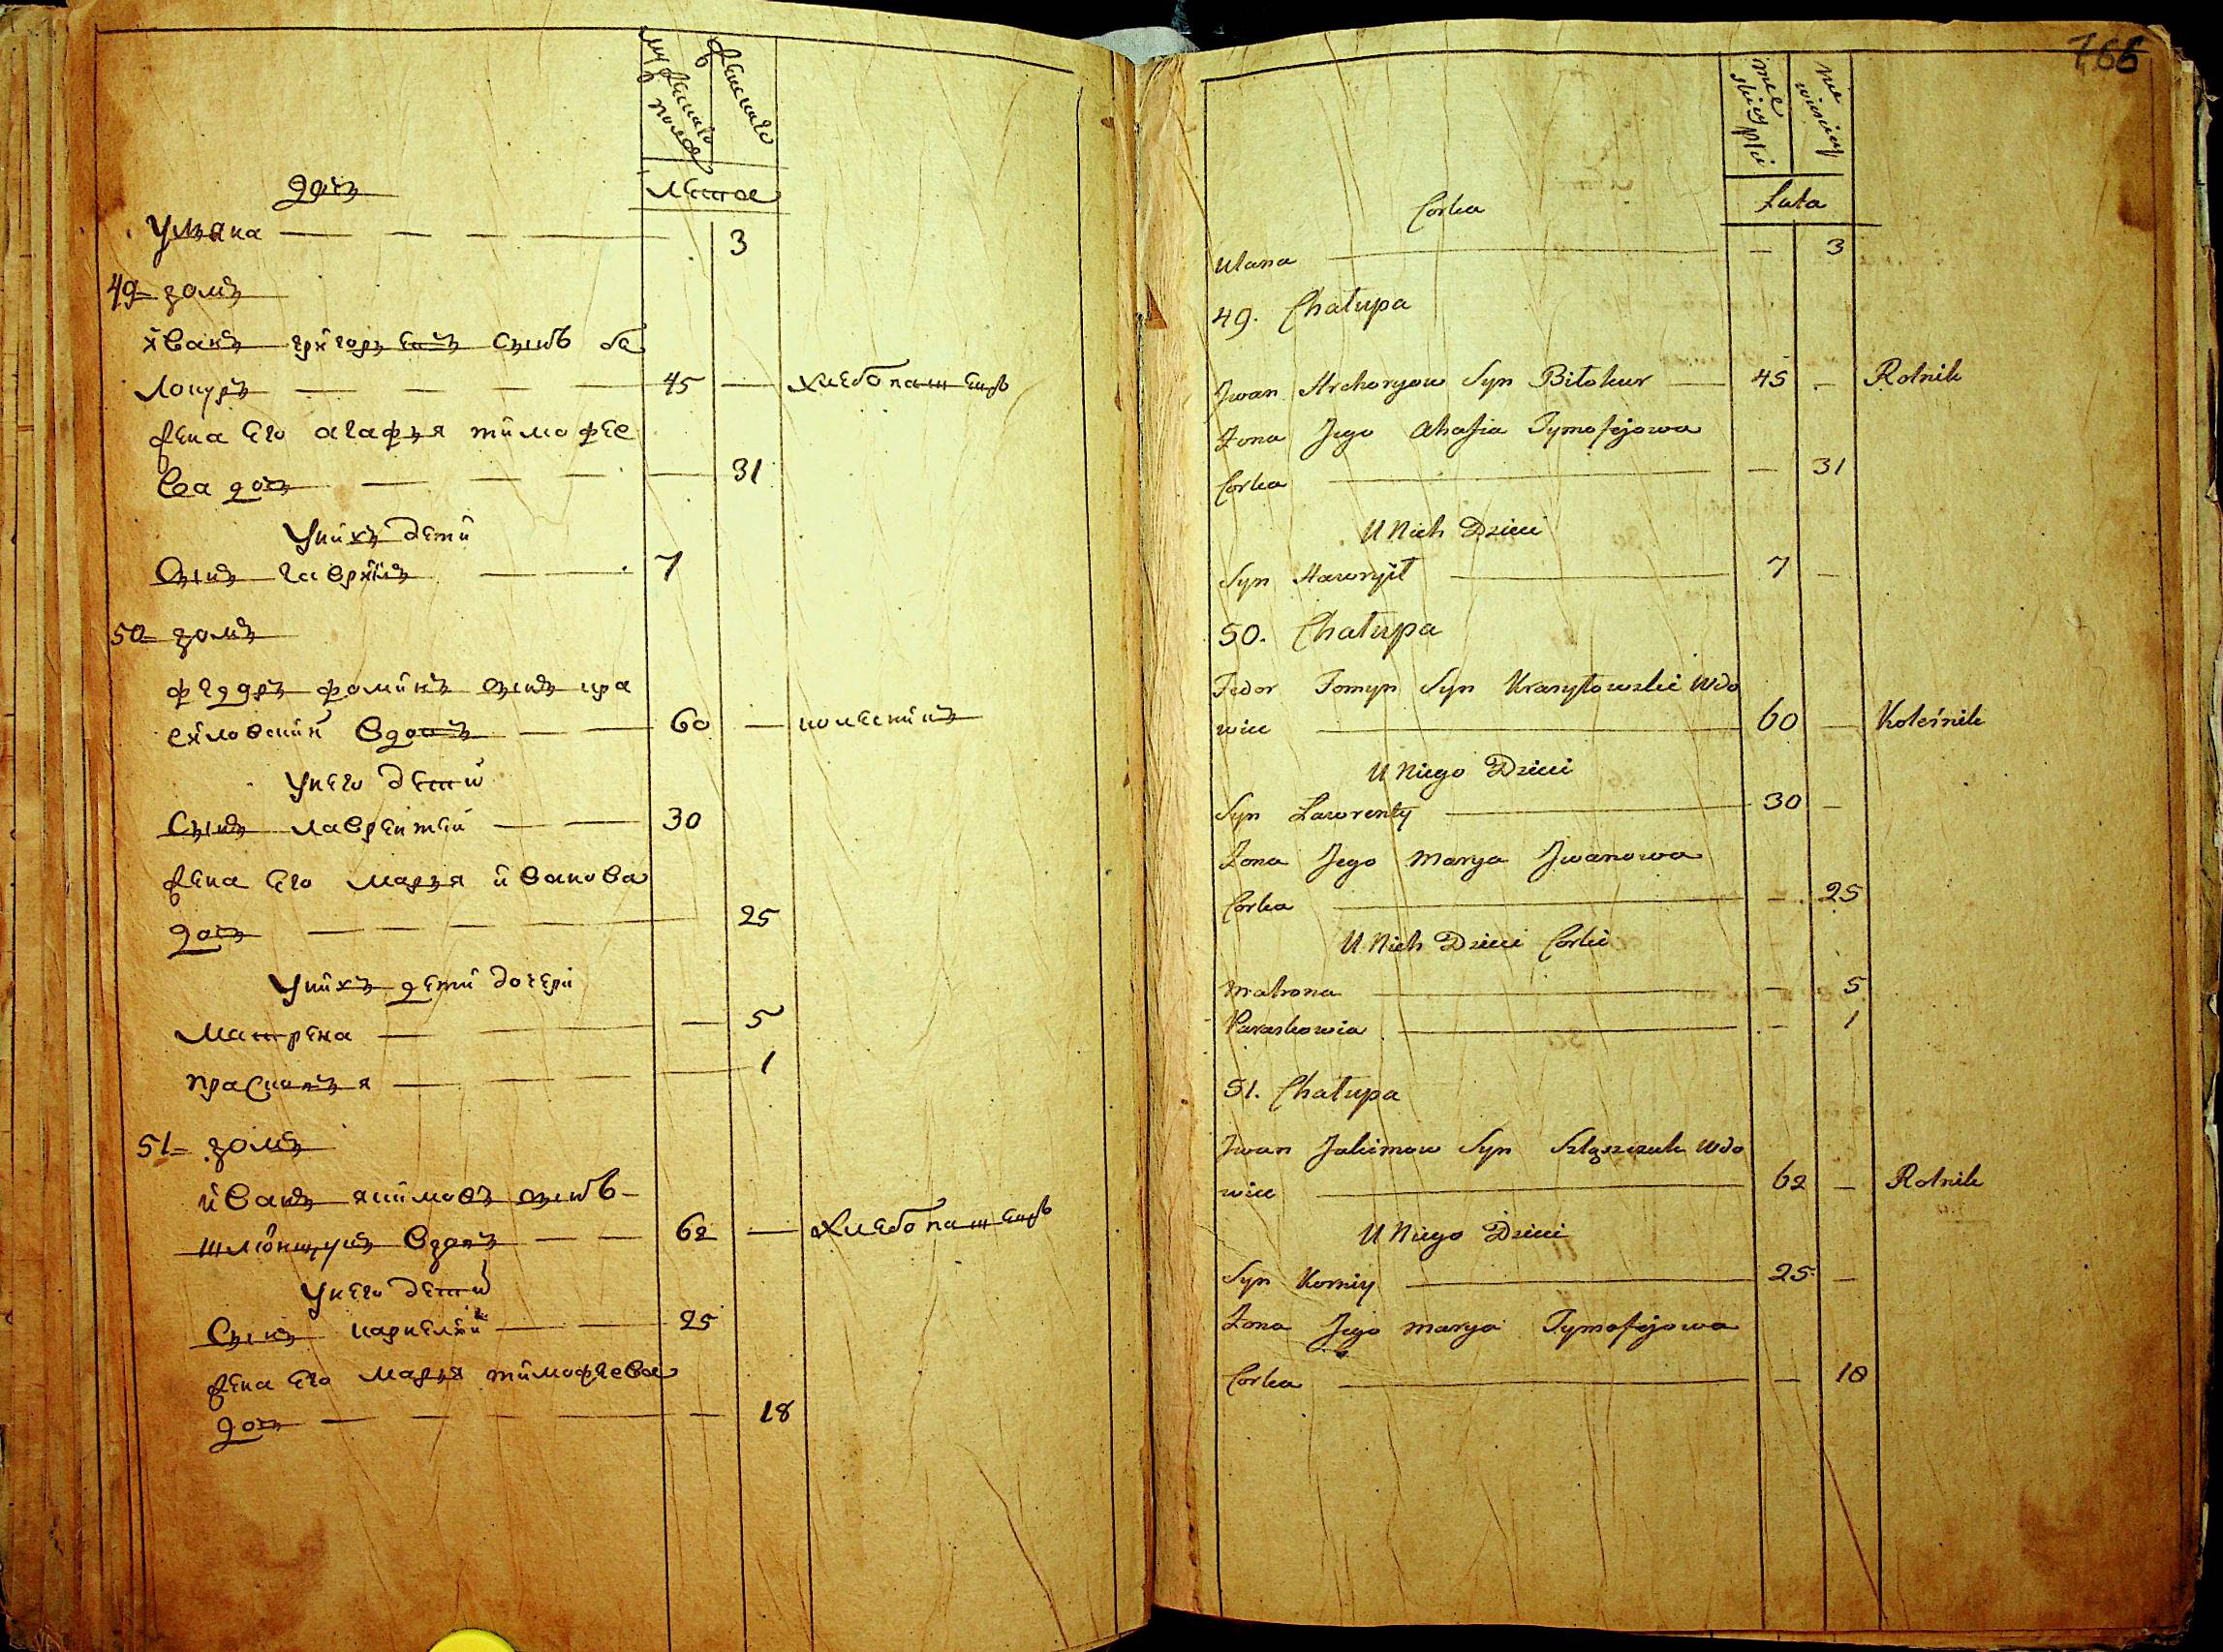 мужеска пола
женска
лѣта
дочъ
Ульяна — — — — 3
49 = домъ
Иванъ григорьевъ сынъ бѣ
локуръ — — — — 45 — хлебопашецъ
жена его агафья тимофее
ва дочь — — — — 31
Унихъ дети
Сынъ гаврилъ — — 7
50 = домъ
федоръ фоминъ сынъ кра
силовский вдовъ — — 60 — колесникъ
Унего дети
Сынъ лаврентей — — 30
жена его марья иванова
дочь — — — — 25
Унихъ дети дочери
Матрена — — — 5
прасковья — — — — 1
51 = домъ
иванъ якимовъ сынъ
вдовъ — — 62 — хлебопашецъ
Унего дети
Сынъ карнелий — — 25
жена его марья тимофеева
дочь — — — — — 18
766
męe skiey płci
Lata
Corka
Ulana — — 3
49. Chałupa
Jwan Hrehoryow Syn Biłokur — 45 — Rolnik
Żona Jego Ahafia Tymofejowa
Corka — — 31
U Nich Dzieci
Syn Hawryił — 7 —
50. Chałupa
Fedor Fomyn Syn Krasyłowski Wdo
wiec — 60 — Kołeśnik
U Niego Dzieci
Syn Lawrenty — 30 —
Żona Jego Marya Jwanowa
Corka — — 25
U Nich Dzieci Corki
Matrona — — 5
Paraskowia — — 1
51. Chałupa
Jwan Jakimow Syn Szląszczuk Wdo
wiec — 62 — Rolnik
U Niego Dzieci
Syn Korniy — 25 —
Żona Jego Marya Tymofejowa
Corka — — 18